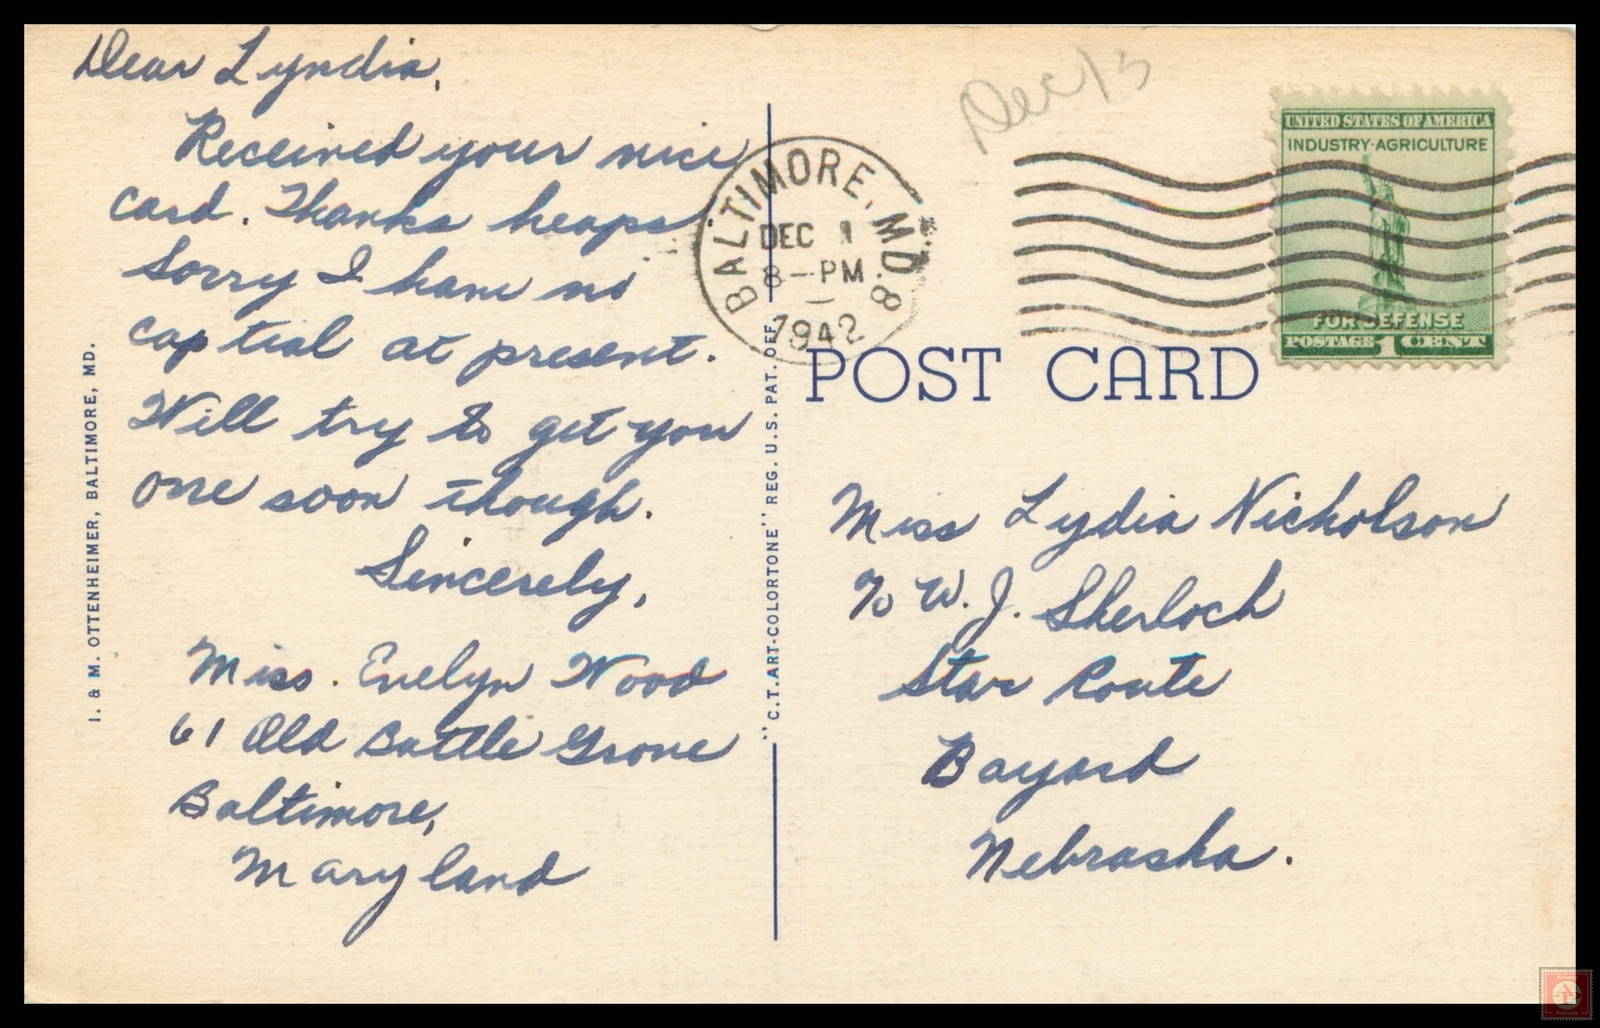 Dear Lyndia,
Received your nice
card. Thanks heaps.
Sorry I have no
captial at present.
Will try to get you
one soon though.
Sincerely,
Miss. Evelyn Wood
61 Old Battle Grove
Baltimore,
Maryland
I. & M. OTTENHEIMER, BALTIMORE, MD.
"C.T. ART-COLORTONE" REG. U.S. PAT. OFF.
Dec 13
BALTIMORE, MD. 8
DEC 1
8-PM
1942
UNITED STATES OF AMERICA
INDUSTRY·AGRICULTURE
FOR DEFENSE
POSTAGE 1 CENT
POST CARD
Miss Lydia Nicholson
℅ W. J. Sherlock
Star Route
Bayard
Nebraska.